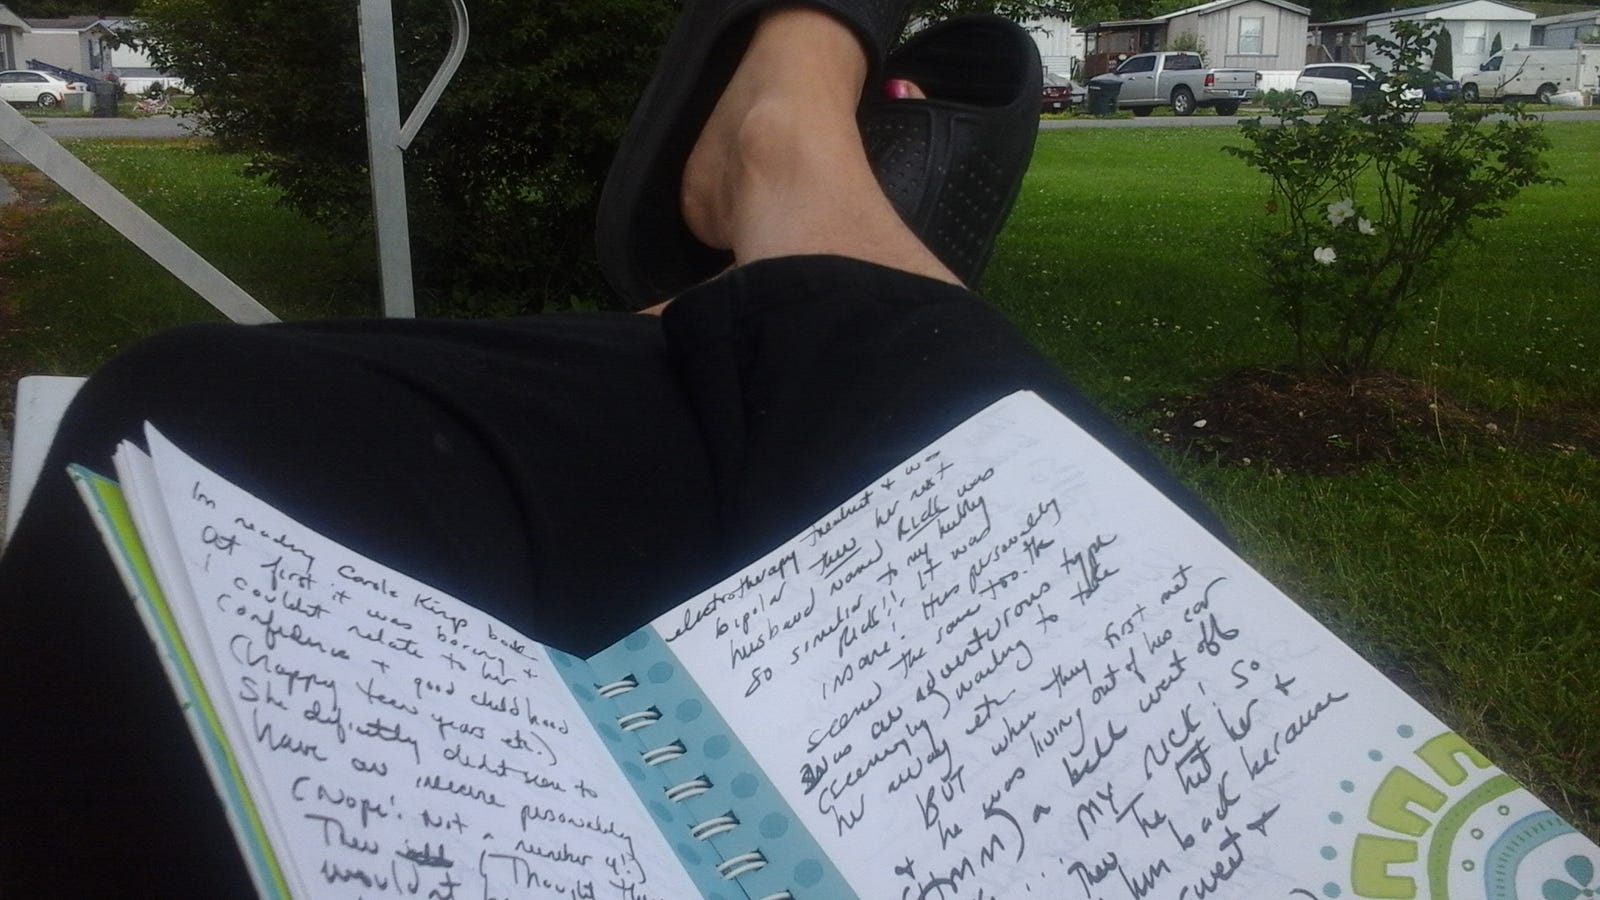 Im reading Carole Kings book
At first it was boring +
i couldnt relate to her
confidence + good childhood
(happy teen years etc.)
She difinitly didnt seem to
have an insecure personality
(Nope! Not a number 4!)
Then (Thought
would
electrotherapy treatment + was
bipolar then her next
husband named Rick was
so similar to my hubby
Rick!! It was
insane! His personality
seemed the same too. He
was an adventurous type
(seemingly) wanting to take
her away etc
BUT when they first met
+ he was living out of his car
(Hmm) a bell went off
MY Rick! So
Then he hit her +
him back because
sweet +